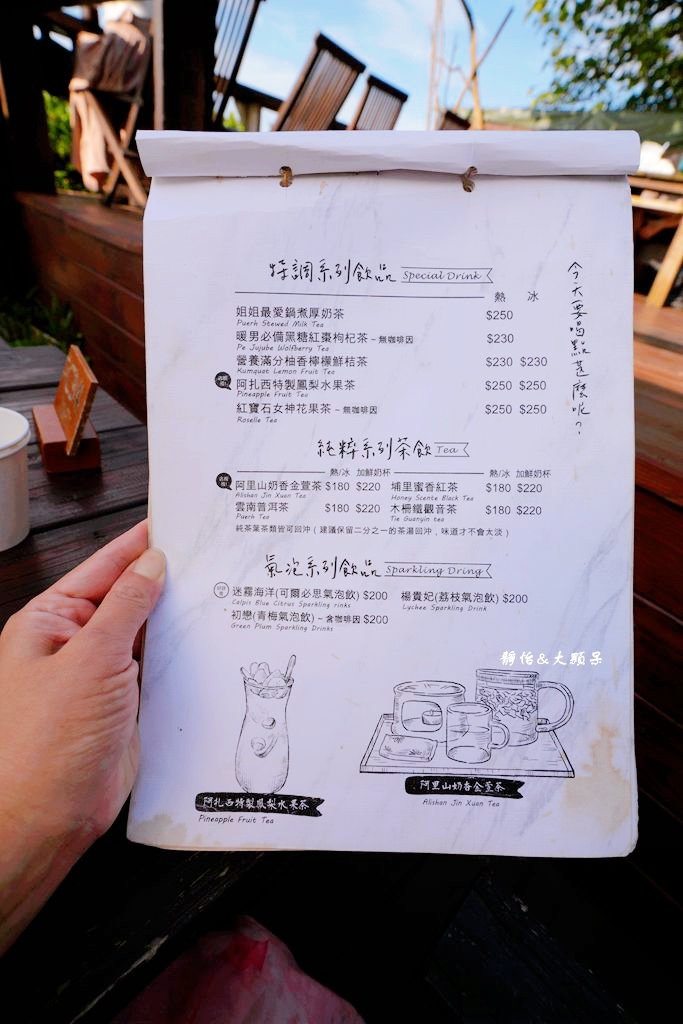 今天要喝點甚麼呢?
特調系列飲品 Special Drink
熱 冰
姐姐最愛鍋煮厚奶茶 $250
Puerh Stewed Milk Tea
暖男必備黑糖紅棗枸杞茶~無咖啡因 $230
Pe Jujube Wolfberry Tea
營養滿分柚香檸檬鮮桔茶 $230 $230
Kumquat Lemon Fruit Tea
阿扎西特製鳳梨水果茶 $250 $250
Pineapple Fruit Tea
紅寶石女神花果茶~無咖啡因 $250 $250
Roselle Tea
純粹系列茶飲 Tea
熱/冰 加鮮奶杯 熱/冰 加鮮奶杯
阿里山奶香金萱茶 $180 $220 埔里蜜香紅茶 $180 $220
Alishan Jin Xuan Tea Honey Scente Black Tea
雲南普洱茶 $180 $220 木柵鐵觀音茶 $180 $220
Puerh Tea Tie Guanyin tea
純茶葉茶類皆可回沖(建議保留二分之一的茶湯回沖,味道才不會太淡)
氣泡系列飲品 Sparkling Dring
迷霧海洋(可爾必思氣泡飲) $200 楊貴妃(荔枝氣泡飲) $200
Calpis Blue Citrus Sparkling rinks Lychee Sparkling Drink
初戀(青梅氣泡飲)~含咖啡因 $200
Green Plum Sparkling Drinks
靜怡&大顆呆
阿扎西特製鳳梨水果茶
Pineapple Fruit Tea
阿里山奶香金萱茶
Alishan Jin Xuan Tea